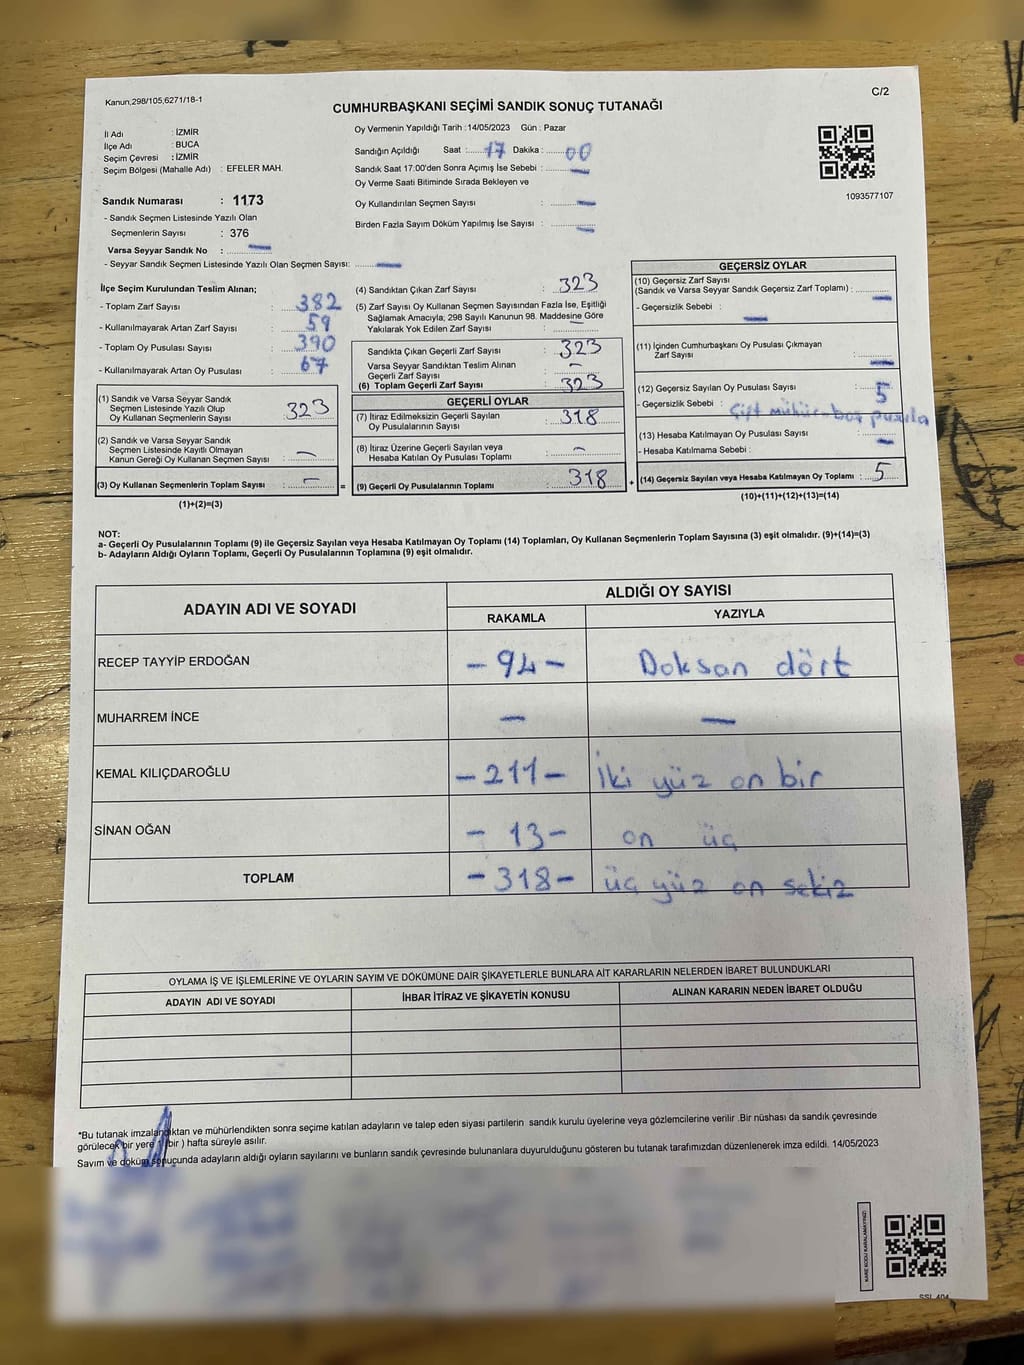 Kanun,298/105,6271/18-1
C/2
CUMHURBAŞKANI SEÇİMİ SANDIK SONUÇ TUTANAĞI
İl Adı : İZMİR
İlçe Adı : BUCA
Seçim Çevresi : İZMİR
Seçim Bölgesi (Mahalle Adı) : EFELER MAH.
Sandık Numarası : 1173
- Sandık Seçmen Listesinde Yazılı Olan
Seçmenlerin Sayısı : 376
Varsa Seyyar Sandık No : —
- Seyyar Sandık Seçmen Listesinde Yazılı Olan Seçmen Sayısı: —
Oy Vermenin Yapıldığı Tarih :14/05/2023 Gün : Pazar
Sandığın Açıldığı Saat : 17 Dakika : 00
Sandık Saat 17:00'den Sonra Açımış İse Sebebi : —
Oy Verme Saati Bitiminde Sırada Bekleyen ve
Oy Kullandırılan Seçmen Sayısı : —
Birden Fazla Sayım Döküm Yapılmış İse Sayısı : —
1093577107
İlçe Seçim Kurulundan Teslim Alınan;
- Toplam Zarf Sayısı : 382
- Kullanılmayarak Artan Zarf Sayısı : 59
- Toplam Oy Pusulası Sayısı : 390
- Kullanılmayarak Artan Oy Pusulası : 67
(1) Sandık ve Varsa Seyyar Sandık
Seçmen Listesinde Yazılı Olup
Oy Kullanan Seçmenlerin Sayısı : 323
(2) Sandık ve Varsa Seyyar Sandık
Seçmen Listesinde Kayıtlı Olmayan
Kanun Gereği Oy Kullanan Seçmen Sayısı : —
(3) Oy Kullanan Seçmenlerin Toplam Sayısı : —
(1)+(2)=(3)
=
(4) Sandıktan Çıkan Zarf Sayısı : 323
(5) Zarf Sayısı Oy Kullanan Seçmen Sayısından Fazla İse, Eşitliği
Sağlamak Amacıyla; 298 Sayılı Kanunun 98. Maddesine Göre
Yakılarak Yok Edilen Zarf Sayısı : —
Sandıkta Çıkan Geçerli Zarf Sayısı : 323
Varsa Seyyar Sandıktan Teslim Alınan
Geçerli Zarf Sayısı : —
(6) Toplam Geçerli Zarf Sayısı : 323
GEÇERLİ OYLAR
(7) İtiraz Edilmeksizin Geçerli Sayılan
Oy Pusulalarının Sayısı : 318
(8) İtiraz Üzerine Geçerli Sayılan veya
Hesaba Katılan Oy Pusulası Toplamı : —
(9) Geçerli Oy Pusulalarının Toplamı : 318
+
GEÇERSİZ OYLAR
(10) Geçersiz Zarf Sayısı
(Sandık ve Varsa Seyyar Sandık Geçersiz Zarf Toplamı) : —
- Geçersizlik Sebebi : —
(11) İçinden Cumhurbaşkanı Oy Pusulası Çıkmayan
Zarf Sayısı : —
(12) Geçersiz Sayılan Oy Pusulası Sayısı : 5
- Geçersizlik Sebebi : Çift mühür-boş pusula
(13) Hesaba Katılmayan Oy Pusulası Sayısı : —
- Hesaba Katılmama Sebebi :
(14) Geçersiz Sayılan veya Hesaba Katılmayan Oy Toplamı : 5
(10)+(11)+(12)+(13)=(14)
NOT:
a- Geçerli Oy Pusulalarının Toplamı (9) ile Geçersiz Sayılan veya Hesaba Katılmayan Oy Toplamı (14) Toplamları, Oy Kullanan Seçmenlerin Toplam Sayısına (3) eşit olmalıdır. (9)+(14)=(3)
b- Adayların Aldığı Oyların Toplamı, Geçerli Oy Pusulalarının Toplamına (9) eşit olmalıdır.
ADAYIN ADI VE SOYADI
ALDIĞI OY SAYISI
RAKAMLA YAZIYLA
RECEP TAYYİP ERDOĞAN - 94 - Doksan dört
MUHARREM İNCE — —
KEMAL KILIÇDAROĞLU - 211 - İki yüz on bir
SİNAN OĞAN - 13 - on üç
TOPLAM - 318 - üç yüz on sekiz
OYLAMA İŞ VE İŞLEMLERİNE VE OYLARIN SAYIM VE DÖKÜMÜNE DAİR ŞİKAYETLERLE BUNLARA AİT KARARLARIN NELERDEN İBARET BULUNDUKLARI
ADAYIN ADI VE SOYADI İHBAR İTİRAZ VE ŞİKAYETİN KONUSU ALINAN KARARIN NEDEN İBARET OLDUĞU
*Bu tutanak imzalandıktan ve mühürlendikten sonra seçime katılan adayların ve talep eden siyasi partilerin sandık kurulu üyelerine veya gözlemcilerine verilir .Bir nüshası da sandık çevresinde
görülecek bir yere 1 (bir ) hafta süreyle asılır.
Sayım ve döküm sonucunda adayların aldığı oyların sayılarını ve bunların sandık çevresinde bulunanlara duyurulduğunu gösteren bu tutanak tarafımızdan düzenlenerek imza edildi. 14/05/2023
KARE KODU KARALAMAYINIZ!